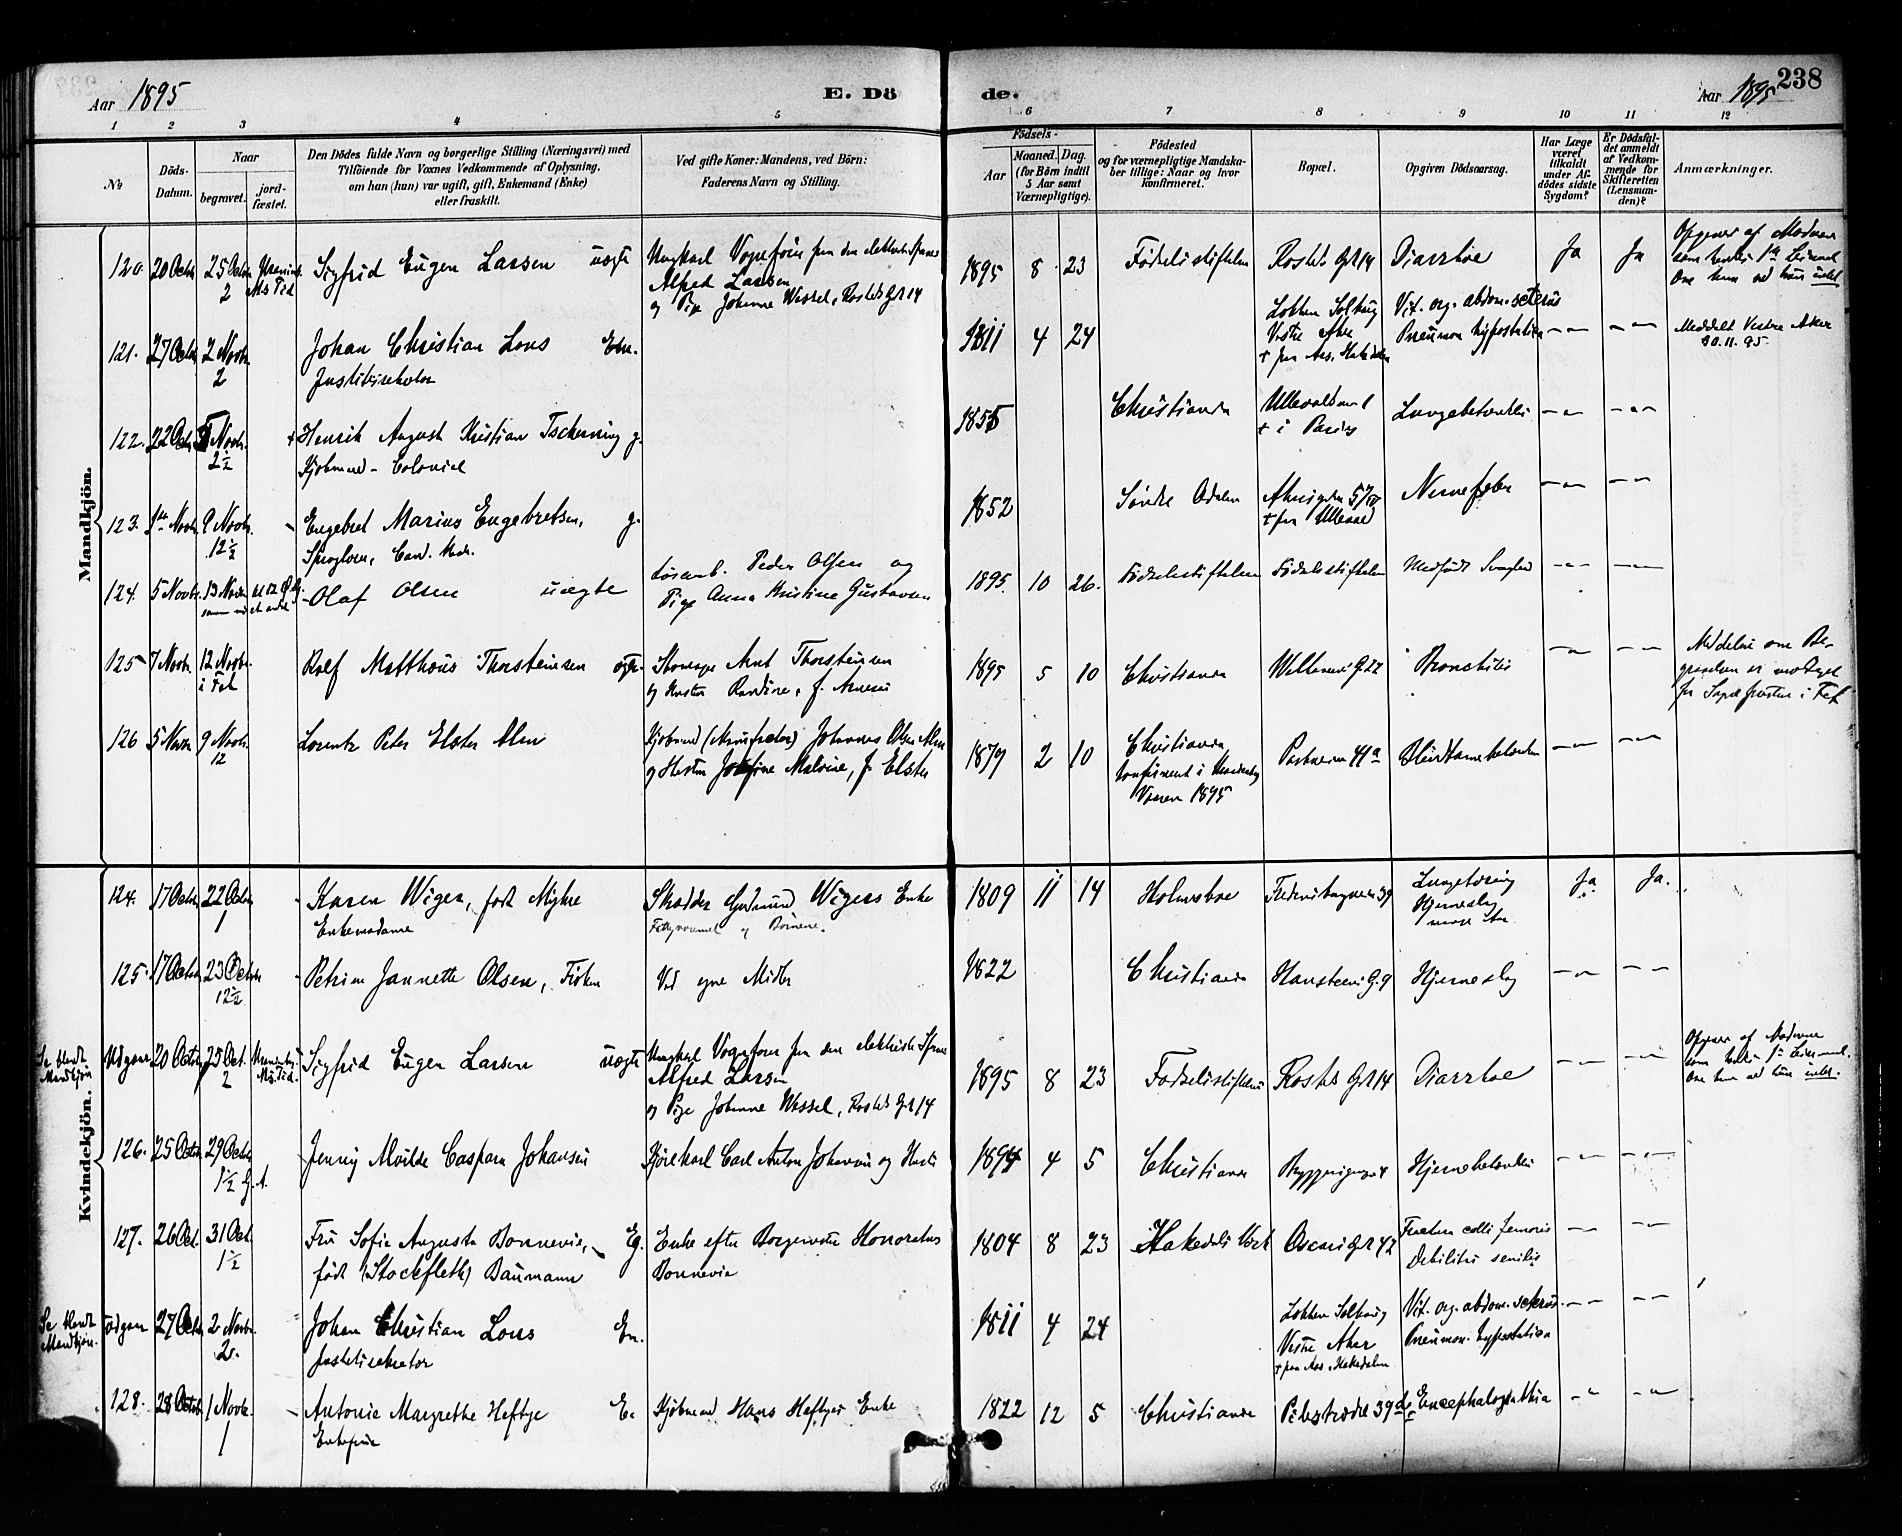 Aar 1895
E. Dö
de.
Aar 1895
238
1 2 3 4 5 6 7 8 9 10 11 12
№
Döds-Datum.
Naar
begravet.
jord-fæstet.
Den Dödes fulde Navn og borgerlige Stilling (Næringsvei) med
Tilföiende for Voxnes Vedkommende af Oplysning,
om han (hun) var ugift, gift, Enkemand (Enke)
eller fraskilt.
Ved gifte Koner: Mandens, ved Börn:
Faderens Navn og Stilling.
Födsels-
Aar
Maaned. Dag.
(for Börn indtil
5 Aar samt
Værnepligtige).
Födested
og for værnepligtige Mandska-
ber tillige: Naar og hvor
konfirmeret.
Bopæl.
Opgiven Dödsaarsag.
Har Læge
været
tilkaldt
under Af-
dödes sidste
Sygdom?
Er Dödsfal-
det anmeldt
af Vedkom-
mende for
Skifteretten
(Lensman-
den)?
Anmærkninger.
Mandkjön.
120. 20 Octr 25 Octr 2 Sigfrid Eugen Larsen uægte
Ungkarl Vognfører fra den elektriske
Alfred Larsen
og Pige Johanne Wessel, Rosteds Gd 14
1895 8 23 Fødselsstiftelsen Rosteds Gd 14 Diarrhoe Ja Ja
Opgivet af Moderen
121. 27 Octr 2 Novbr. 2 Johan Christian Lous Em.
1811 4 24
Løkken Solhaug
Vestre Aker
Vit. org. abdom.
Pneumon. hypostatica
Meddelt Vestre Aker
30.11.95
122. 22 Octr Novbr. 2½ Henrik August Kristian Tscherning g.
Kjøbmand - Colonial
1855 Christiania
+ i Paris
Lungebetændelse
123. 1ste Novbr 9 Novbr. 12½ Engebret Marius Engebretsen, g.
1852 Søndre Odalen
Nervefeber
124. 5 Novbr. 13 Novbr. Olaf Olsen uægte
Løsarb. Peder Olsen og
Pige Anna Kristine Gustavsen
1895. 10 26. Fødselsstiftelsen Fødselsstiftelsen Medfødt Svaghed
125 7 Novbr. 12 Novbr. i Fet Rolf Matthæus Thorsteinsen ægte
Arnt Thorsteinsen
1895 5 10 Christiania Bronchitis
Meddelelse om Be-
gravelsen er modtaget
fra Sognepræsten i Fet
126 5 Novbr 9 Novbr. 12 Lorentz Peter Elster Alm
Kjøbmand Johannes Olsen Alm
og Hustru Josefine Malvine, f. Elster
1879 2 10 Christiania
Vaaren 1895
Blindtarmbetændelse
Kvindekjön.
124. 17 Octr 22 Octr 1 Karen Wiger, født Myhre
Enkemadame
Skrædder Gudmund Wigers Enke
1809 11 14 Holmsboe
Lungetæring
Hjerneslag
Ja Ja.
125. 17 Octr 23 Octr 12½ Petrine Jannette Olsen, Frøken
Ved egne Midler
1822 Christiania Hansteens G. 9 Hjerneslag
Se blandt
Mandkjøn
Udgaar 20 Octbr 25 Oct. 2 Sigfrid Eugen Larsen uægte
Ungkarl Vognfører fra den elektriske
Alfred Larsen
og Pige Johanne Wessel, Rosteds Gd 14
1895 8 23 Fødselsstiftelsen Rosteds Gd 14 Diarrhoe
Opgivet af Moderen
126. 25 Octbr 29 Octbr 1½ Jenny Alvilde Caspara Johansen
Kjørekarl Carl Anton Johansen og Hustru
1894 4 5 Christiania Hjernebetændelse
127. 26 Oct. 31 Oct. 1½ Fru Sofie Augusta Bonnevie,
født (Stockfleth) Baumann
Enke efter Borgermester Honoratus
Bonnevie
1804 8 23 Hakedals Værk Oscars Gd 42
Fractura colli femoris
Debilitas senilis
Se blandt
Mandkjøn.
Udgaar 27 Octr 2 Novbr. 2. Johan Christian Lous Em.
1811 4 24
Løkken Solhaug
Vestre Aker
Vit. org. abdom.
Pneumon. hypostatica
128. 28 Octob. 1 Novbr. 1 Antonie Margrethe Heftye E.
Enkefrue
Kjøbmand Hans Heftyes Enke
1822 12 5 Christiania Pilestrædet 39 Encephalopathia